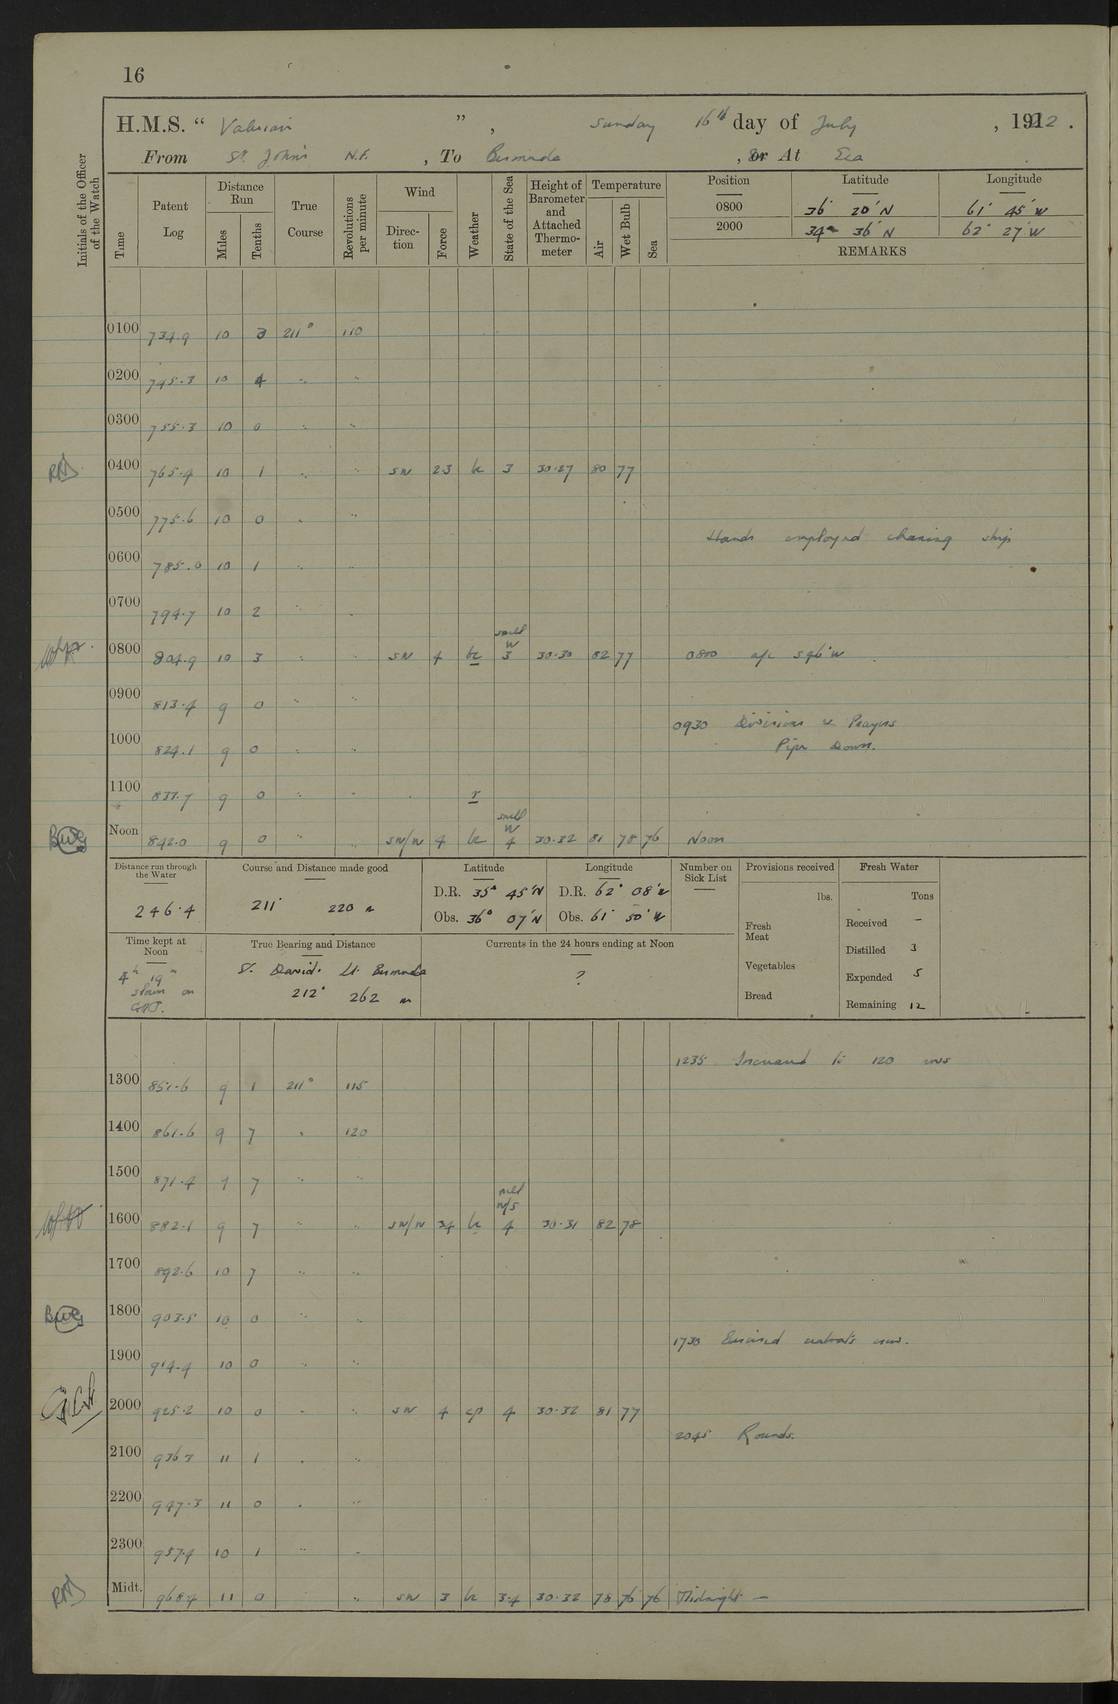 16
H.M.S. " Valerian " , Sunday 16th day of July , 1922 .
From St. John's N.F. , To Bermuda , or At Sea
Initials of the Officer of the Watch
Time
Patent Log
Distance Run
Miles Tenths
True Course
Revolutions per minute
Wind
Direc-tion Force
Weather
State of the Sea
Height of Barometer and Attached Thermo-meter
Temperature
Air Wet Bulb Sea
Position Latitude Longitude
0800 36° 20' N 61° 45' W
2000 34° 36' N 62° 27' W
REMARKS
0100 734.9 10 3 211° 110
0200 745.3 10 4 " "
0300 755.3 10 0 " "
0400 765.4 10 1 " " SW 23 bc 3 30.27 80 77
0500 775.6 10 0 " "
Hands employed cleaning ship
0600 785.0 10 1 " "
0700 794.7 10 2 " "
swell
W
0800 804.9 10 3 " " SW 4 bc 3 30.30 82 77 0800 a/c S46°W
0900 813.4 9 0 " "
0930 Divisions & Prayers
1000 824.1 9 0 " " Pipe Down.
1100 833.7 9 0 " " r
swell
W
Noon 842.0 9 0 " " SW/W 4 bc 4 30.32 81 78 76 Noon
Distance run through the Water
246.4
Course and Distance made good
211° 220 m
Latitude
D.R. 35° 45' N
Obs. 36° 07' N
Longitude
D.R. 62° 08' W
Obs. 61° 50' W
Number on Sick List
Provisions received
lbs.
Fresh Meat
Vegetables
Bread
Fresh Water
Tons
Received –
Distilled 3
Expended 5
Remaining 12
Time kept at Noon
4h 19m
slow on
GMT.
True Bearing and Distance
St. David's Lt. Bermuda
212° 262 m
Currents in the 24 hours ending at Noon
?
1235 Increased to 120 revs
1300 851.6 9 1 211° 115
1400 861.6 9 7 " 120
1500 871.4 9 7 " "
swell
W/S
1600 882.1 9 7 " " SW/W 34 bc 4 30.31 82 78
1700 892.6 10 7 " "
1800 903.5 10 0 " "
1730 Exercised
1900 914.4 10 0 " "
2000 925.2 10 0 " " SW 4 cp 4 30.32 81 77
2045 Rounds.
2100 936.3 11 1 " "
2200 947.3 11 0 " "
2300 957.4 10 1 " "
Midt. 968.4 11 0 " SW 3 bc 3.4 30.32 78 76 76 Midnight —